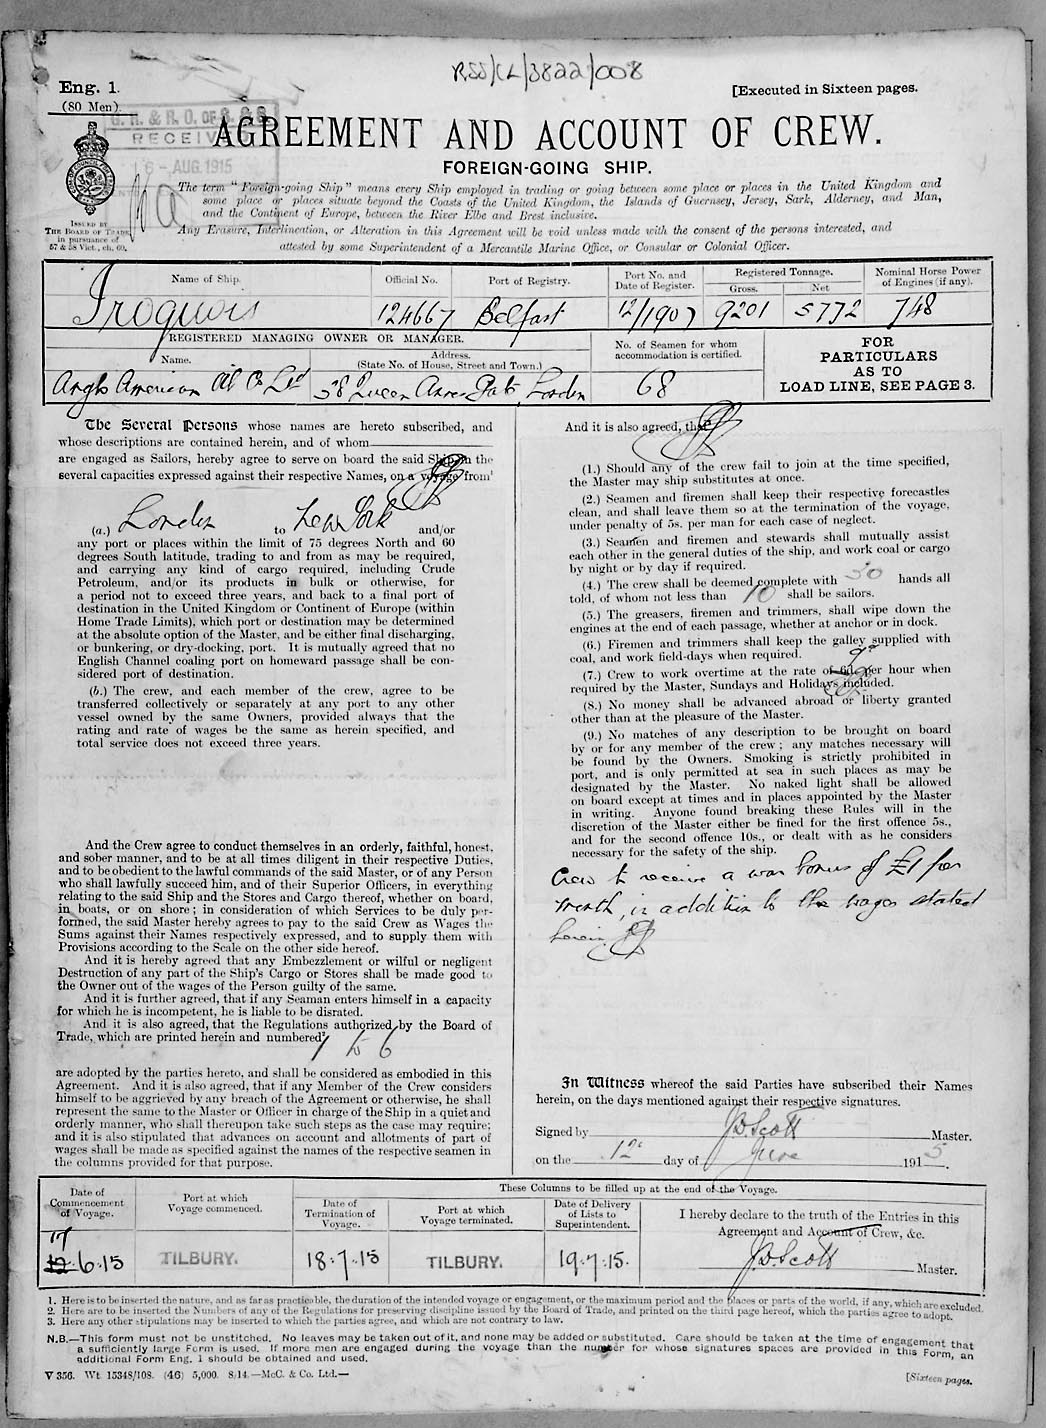 RSS/CL/3822/008
Eng. 1.
(80 Men).
[Executed in Sixteen pages.
G. R. & R. O. OF S. & S.
RECEIVED
6 – AUG. 1915
AGREEMENT AND ACCOUNT OF CREW.
FOREIGN-GOING SHIP.
ISSUED BY
THE BOARD OF TRADE
in pursuance of
57 & 58 Vict., ch. 60.
The term "Foreign-going Ship" means every Ship employed in trading or going between some place or places in the United Kingdom and
some place or places situate beyond the Coasts of the United Kingdom, the Islands of Guernsey, Jersey, Sark, Alderney, and Man,
and the Continent of Europe, between the River Elbe and Brest inclusive.
Any Erasure, Interlineation, or Alteration in this Agreement will be void unless made with the consent of the persons interested, and
attested by some Superintendent of a Mercantile Marine Office, or Consular or Colonial Officer.
Name of Ship.
Official No.
Port of Registry.
Port No. and
Date of Register.
Registered Tonnage.
Gross.
Net
Nominal Horse Power
of Engines (if any).
Iroquois
124667
Belfast
12/1907
9201
5772
748
REGISTERED MANAGING OWNER OR MANAGER.
Name.
Address.
(State No. of House, Street and Town.)
No. of Seamen for whom
accommodation is certified.
FOR
PARTICULARS
AS TO
LOAD LINE, SEE PAGE 3.
Anglo American Oil Co Ltd
38 Queen Annes Gate, London
68
The Several Persons whose names are hereto subscribed, and
whose descriptions are contained herein, and of whom
are engaged as Sailors, hereby agree to serve on board the said Ship in the
several capacities expressed against their respective Names, on a voyage from¹
(a.) London to New York and/or
any port or places within the limit of 75 degrees North and 60
degrees South latitude, trading to and from as may be required,
and carrying any kind of cargo required, including Crude
Petroleum, and/or its products in bulk or otherwise, for
a period not to exceed three years, and back to a final port of
destination in the United Kingdom or Continent of Europe (within
Home Trade Limits), which port or destination may be determined
at the absolute option of the Master, and be either final discharging,
or bunkering, or dry-docking, port. It is mutually agreed that no
English Channel coaling port on homeward passage shall be con-
sidered port of destination.
(b.) The crew, and each member of the crew, agree to be
transferred collectively or separately at any port to any other
vessel owned by the same Owners, provided always that the
rating and rate of wages be the same as herein specified, and
total service does not exceed three years.
And the Crew agree to conduct themselves in an orderly, faithful, honest,
and sober manner, and to be at all times diligent in their respective Duties,
and to be obedient to the lawful commands of the said Master, or of any Person
who shall lawfully succeed him, and of their Superior Officers, in everything
relating to the said Ship and the Stores and Cargo thereof, whether on board,
in boats, or on shore; in consideration of which Services to be duly per-
formed, the said Master hereby agrees to pay to the said Crew as Wages the
Sums against their Names respectively expressed, and to supply them with
Provisions according to the Scale on the other side hereof.
And it is hereby agreed that any Embezzlement or wilful or negligent
Destruction of any part of the Ship's Cargo or Stores shall be made good to
the Owner out of the wages of the Person guilty of the same.
And it is further agreed, that if any Seaman enters himself in a capacity
for which he is incompetent, he is liable to be disrated.
And it is also agreed, that the Regulations authorized by the Board of
Trade, which are printed herein and numbered²
1 to 6
are adopted by the parties hereto, and shall be considered as embodied in this
Agreement. And it is also agreed, that if any Member of the Crew considers
himself to be aggrieved by any breach of the Agreement or otherwise, he shall
represent the same to the Master or Officer in charge of the Ship in a quiet and
orderly manner, who shall thereupon take such steps as the case may require;
and it is also stipulated that advances on account and allotments of part of
wages shall be made as specified against the names of the respective seamen in
the columns provided for that purpose.
And it is also agreed, that³
(1.) Should any of the crew fail to join at the time specified,
the Master may ship substitutes at once.
(2.) Seamen and firemen shall keep their respective forecastles
clean, and shall leave them so at the termination of the voyage,
under penalty of 5s. per man for each case of neglect.
(3.) Seamen and firemen and stewards shall mutually assist
each other in the general duties of the ship, and work coal or cargo
by night or by day if required.
(4.) The crew shall be deemed complete with 50 hands all
told, of whom not less than 10 shall be sailors.
(5.) The greasers, firemen and trimmers, shall wipe down the
engines at the end of each passage, whether at anchor or in dock.
(6.) Firemen and trimmers shall keep the galley supplied with
coal, and work field-days when required.
9d
(7.) Crew to work overtime at the rate of per hour when
required by the Master, Sundays and Holidays included.
(8.) No money shall be advanced abroad or liberty granted
other than at the pleasure of the Master.
(9.) No matches of any description to be brought on board
by or for any member of the crew; any matches necessary will
be found by the Owners. Smoking is strictly prohibited in
port, and is only permitted at sea in such places as may be
designated by the Master. No naked light shall be allowed
on board except at times and in places appointed by the Master
in writing. Anyone found breaking these Rules will in the
discretion of the Master either be fined for the first offence 5s.,
and for the second offence 10s., or dealt with as he considers
necessary for the safety of the ship.
Crew to receive a war bonus of £1 per
month, in addition to the wages stated
herein
In Witness whereof the said Parties have subscribed their Names
herein, on the days mentioned against their respective signatures.
Signed by J.D. Scott Master.
on the 12th day of June 1915.
Date of
Commencement
of Voyage.
Port at which
Voyage commenced.
These Columns to be filled up at the end of the Voyage.
Date of
Termination of
Voyage.
Port at which
Voyage terminated.
Date of Delivery
of Lists to
Superintendent.
I hereby declare to the truth of the Entries in this
Agreement and Account of Crew, &c.
17
12.6.15
TILBURY.
18.7.15
TILBURY.
19.7.15.
J.D. Scott Master.
1. Here is to be inserted the nature, and as far as practicable, the duration of the intended voyage or engagement, or the maximum period and the places or parts of the world, if any, which are excluded.
2. Here are to be inserted the Numbers of any of the Regulations for preserving discipline issued by the Board of Trade, and printed on the third page hereof, which the parties agree to adopt.
3. Here any other stipulations may be inserted to which the parties agree, and which are not contrary to law.
N.B.—This form must not be unstitched. No leaves may be taken out of it, and none may be added or substituted. Care should be taken at the time of engagement that
a sufficiently large Form is used. If more men are engaged during the voyage than the number for whose signatures spaces are provided in this Form, an
additional Form Eng. 1 should be obtained and used.
V 356. Wt. 15348/108. (46) 5,000. 8/14.—McC. & Co. Ltd.—
[Sixteen pages.